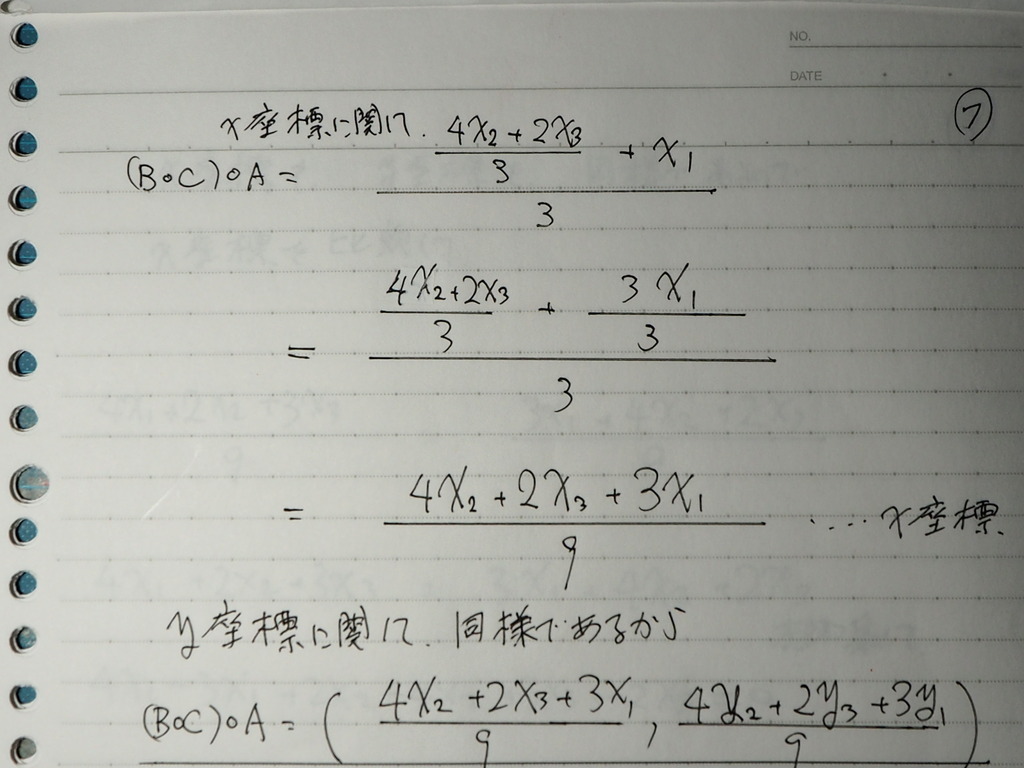 NO.
DATE
⑦
x座標に関して.
(B∘C)∘A = ((4x₂+2x₃)/3 + x₁)/3
= ((4x₂+2x₃)/3 + 3x₁/3)/3
= (4x₂+2x₃+3x₁)/9 ····· x座標
y座標に関して. 同様であるから
(B∘C)∘A = ((4x₂+2x₃+3x₁)/9, (4y₂+2y₃+3y₁)/9)